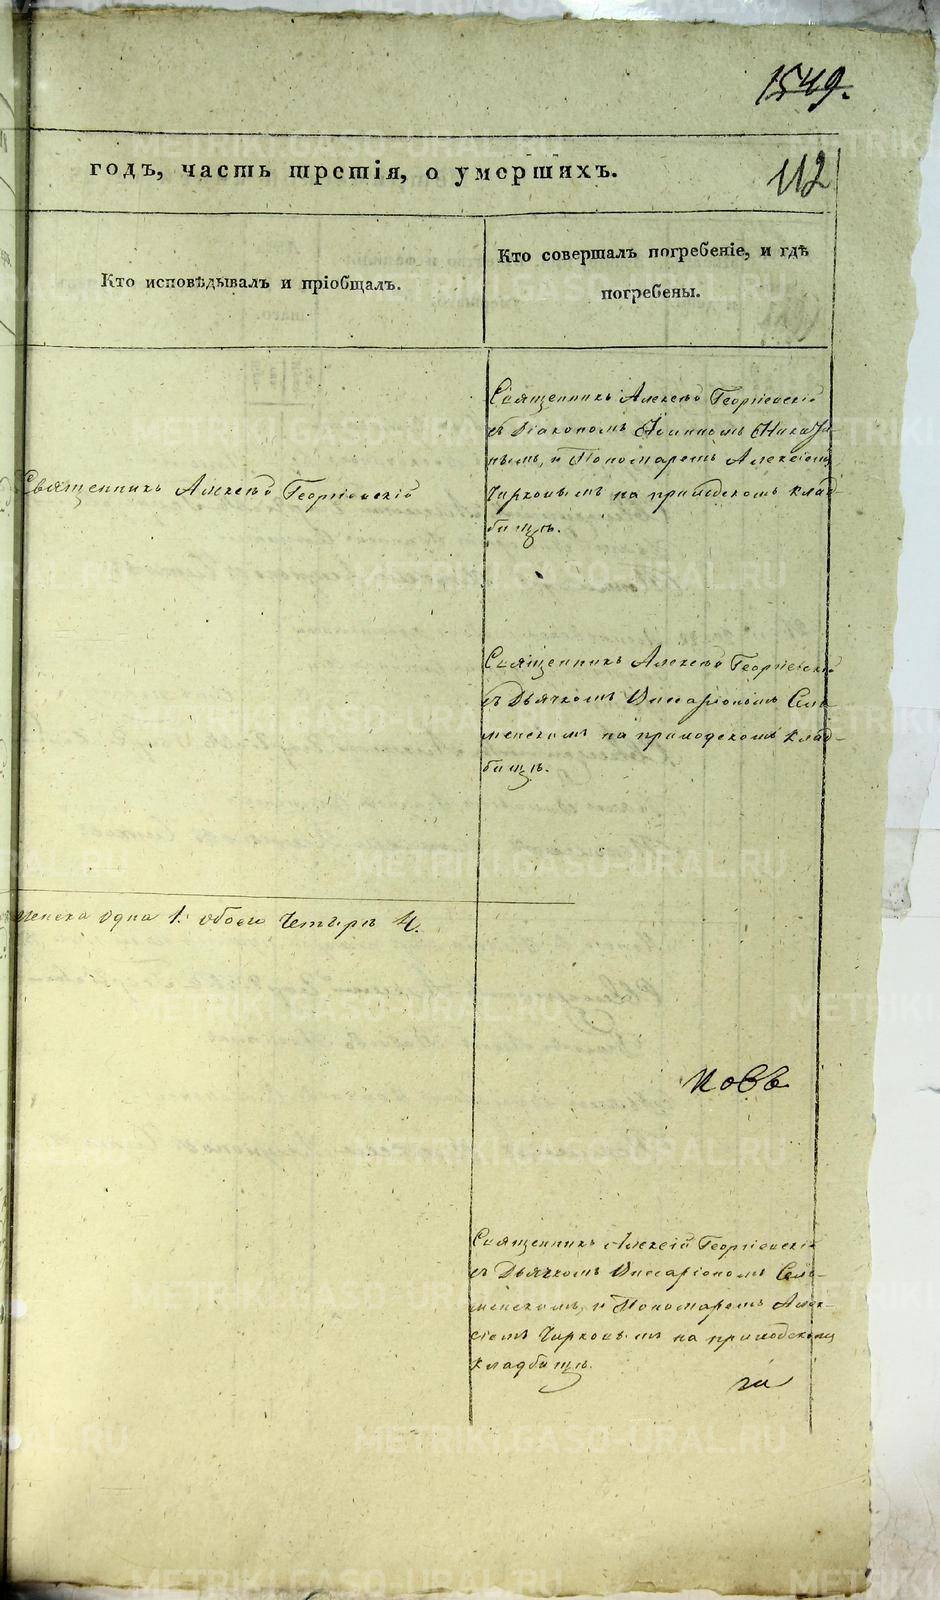 1549.
112
годъ, часть третія, о умершихъ.
Кто исповѣдывалъ и пріобщалъ.
Кто совершалъ погребеніе, и гдѣ
погребены.
Священникъ Алексѣй Георгіевскій
Священникъ Алексѣй Георгіевскій
съ Діакономъ
нымъ, и Пономаремъ Алексіемъ
Чирковымъ на приходскомъ клад-
бищѣ.
Священникъ Алексѣй Георгіевскій
съ Дьячкомъ Виссаріономъ Сель-
менскимъ на приходскомъ клад-
бищѣ.
женска одна 1. обоего Четыре 4.
новъ
Священникъ Алексій Георгіевскій
съ Дьячкомъ Виссаріономъ Сель-
менскимъ, и Пономаремъ Алек-
сіемъ Чирковымъ на приходскомъ
кладбищѣ.
METRIKI.GASO-URAL.RU